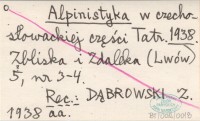 Alpinistyka w czecho-
słowackiej części Tatr. 1938
Zbliska i Zdaleka (Lwów)
5, nr 3-4.
Rec.: DĄBROWSKI Z.
1938 aa.